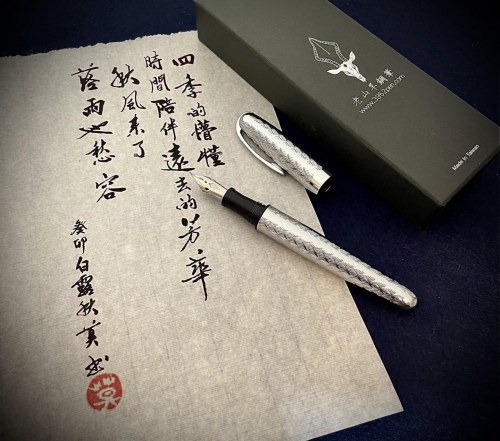 四季的懵懂
時間陪伴遠去的芳華
秋風來了
落雨也愁容
癸卯白露秋英書
老山羊鋼筆
www.3952pen.com
Made in Taiwan